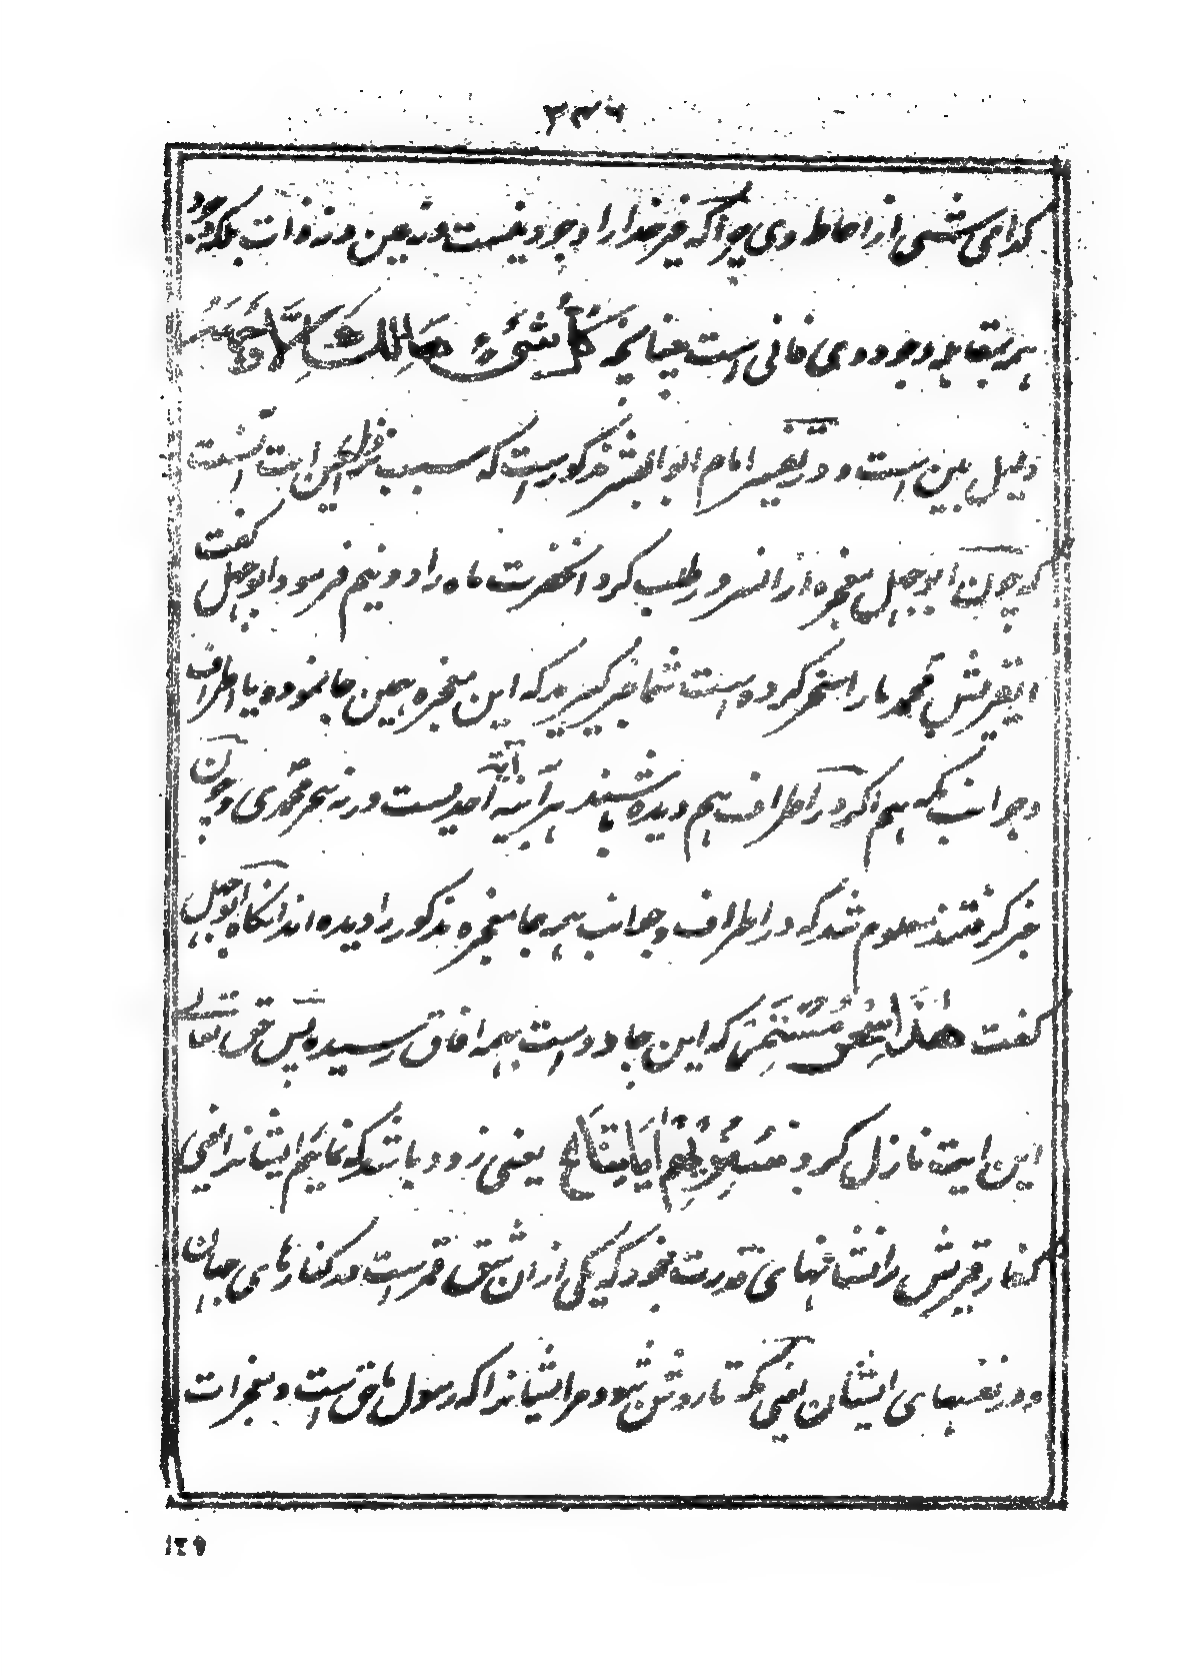 ۳۳۶
کدامی شئی از احاطه وی چراکه غیر خدا را وجود نیست و نه عین و نه ذات بلکه وجود
همه بمقابله وجود وی فانی است چنانچه كُلُّ شَيْءٍ هَالِكٌ إِلَّا وَجْهَهُ
دلیل بین است و در تفسیر امام ابو اللیث مذکور است که سبب نزول این ایت آنست
که چون ابوجهل معجزه از انسرور طلب کرد انحضرت ماه را دو نیم فرمود ابوجهل گفت
ای قریش محمد مارا سحر کرده است شما خبر گیرید که این معجزه همین جا نموده یا اطراف
و جوانب که هم اگر در اطراف هم دیده باشند هر آینه آیة احدیست ورنه سحر محمدی و چون
خبر گرفتند معلوم شد که در اطراف و جوانب همه جا معجزه مذکور را دیده اند انگاه ابوجهل
گفت هٰذَا سِحْرٌ مُسْتَمِرٌّ که این جادو است بهمه افاق رسیده پس حق تعالے
این ایت نازل کرد سَنُرِيهِمْ آيَاتِنَا الخ یعنی زود باشد که نمایم ایشانرا یعنی
کفار قریش را نشانهای قدرت خود که یکی از ان شق قمر است در کنارهای جهان
و در نفسهای ایشان یعنی مکه تا روشن شود مر ایشانرا که رسول ما حق است و معجزات
۱۲۹